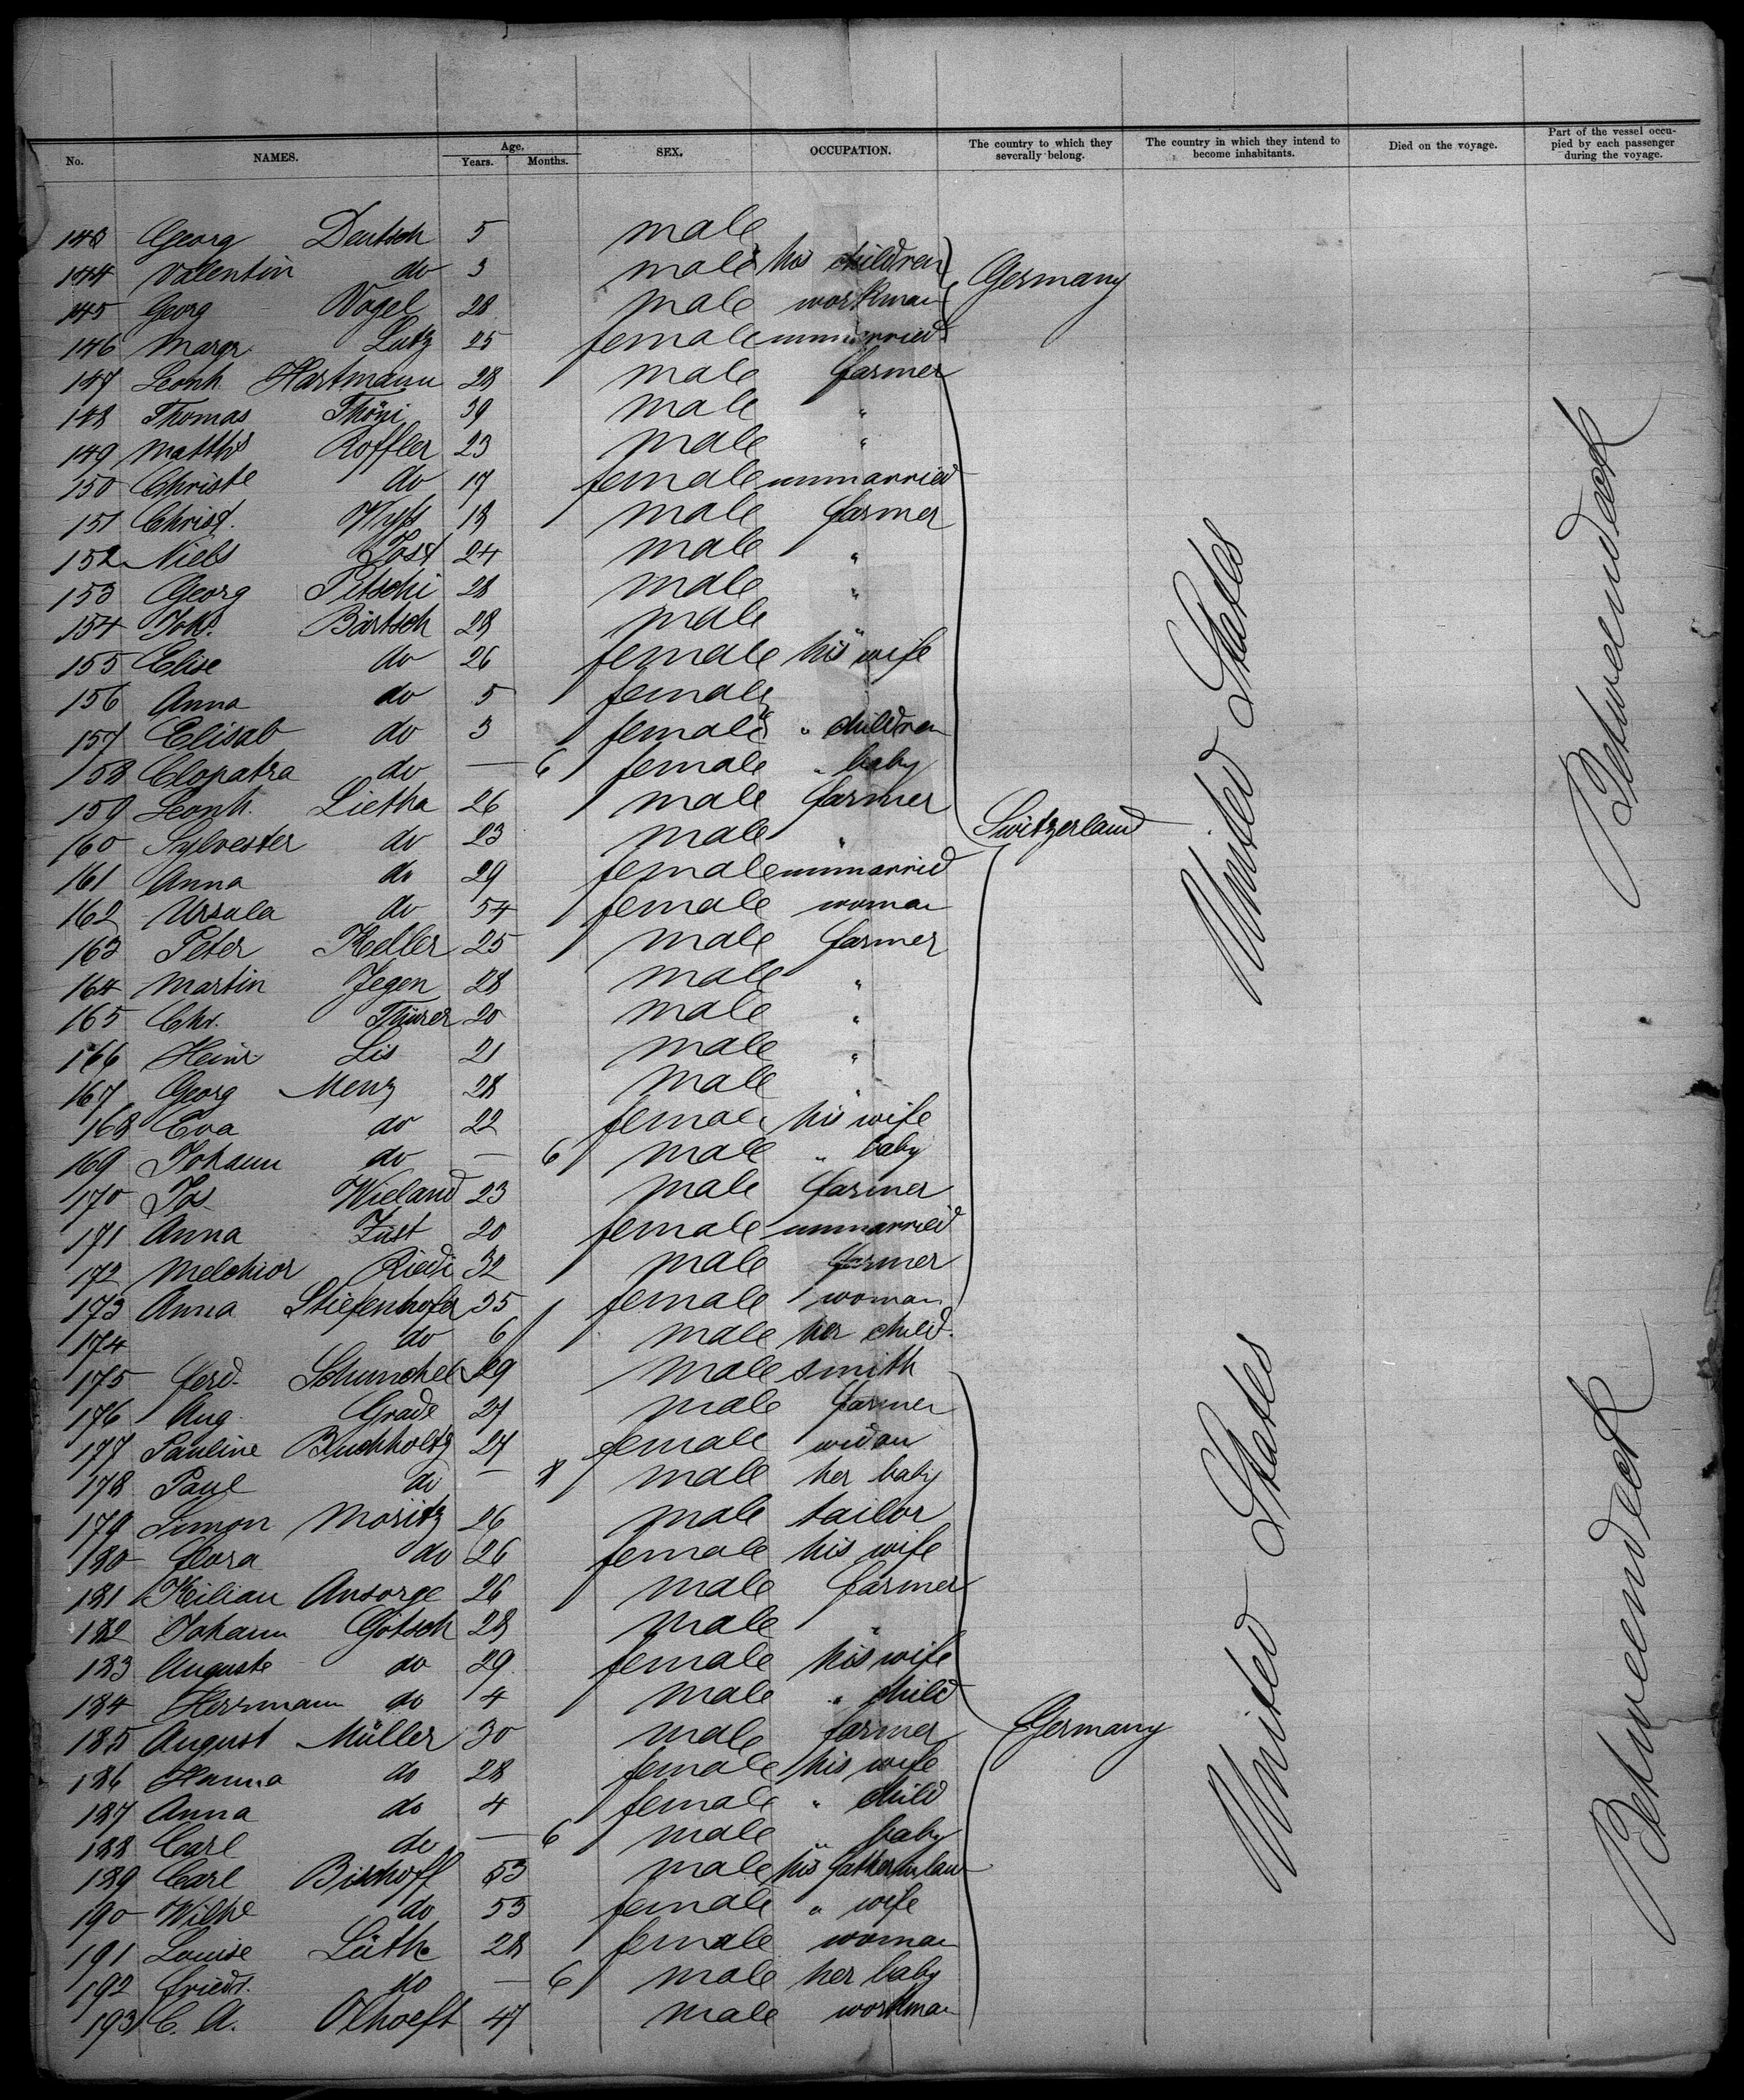 No. NAMES. Age. Years. Months. SEX. OCCUPATION. The country to which they severally belong. The country in which they intend to become inhabitants. Died on the voyage. Part of the vessel occupied by each passenger during the voyage.
143 Georg Deutsch 5 male
144 Valentin do 3 male his children
145 Georg Vogel 28 male workman Germany
146 Margr. Lutz 25 female unmarried
147 Leonh. Hartmann 28 male farmer
148 Thomas Thöni 39 male "
149 Matths Roffler 23 male "
150 Christe do 17 female unmarried
151 Christ. Wyss 18 male farmer
152 Niels Jost 24 male "
153 Georg Pitschi 28 male "
154 Joh. Bärtsch 28 male "
155 Elise do 26 female his wife
156 Anna do 5 female
157 Elisab do 3 female " children
158 Clopatra do — 6 female " baby
159 Leonh. Lietha 26 male farmer
160 Sylvester do 23 male " Switzerland
161 Anna do 29 female unmarried
162 Ursula do 54 female woman
163 Peter Keller 25 male farmer
164 Martin Jegen 28 male "
165 Chr. Thürer 20 male "
166 Heinr Lis 21 male "
167 Georg Menz 28 male "
168 Eva do 22 female his wife
169 Johann do — 6 male " baby
170 Jos Wieland 23 male farmer
171 Anna Züst 20 female unmarried
172 Melchior Riedi 32 male farmer
173 Anna Stiefenhofer 35 female woman
174 do 6 male her child.
175 Ferd. Schunchel 29 male smith
176 Aug. Grade 27 male farmer
177 Pauline Buchholtz 27 female widow
178 Paul do — 8 male her baby
179 Simon Moritz 26 male tailor
180 Flora do 26 female his wife
181 Kilian Ansorge 26 male farmer
182 Johann Götsch 28 male "
183 Auguste do 29 female his wife
184 Herrmann do 4 male " child
185 August Müller 30 male farmer Germany
186 Hanna do 28 female his wife
187 Anna do 4 female " child
188 Carl do — 6 male " baby
189 Carl Bischoff 53 male his father in law
190 Wilhe do 53 female " wife
191 Louise Lüth 28 female woman
192 Friedr. do — 6 male her baby
193 C. A. Olhoeft 47 male workman
United States
United States
Betweendeck
Betweendeck